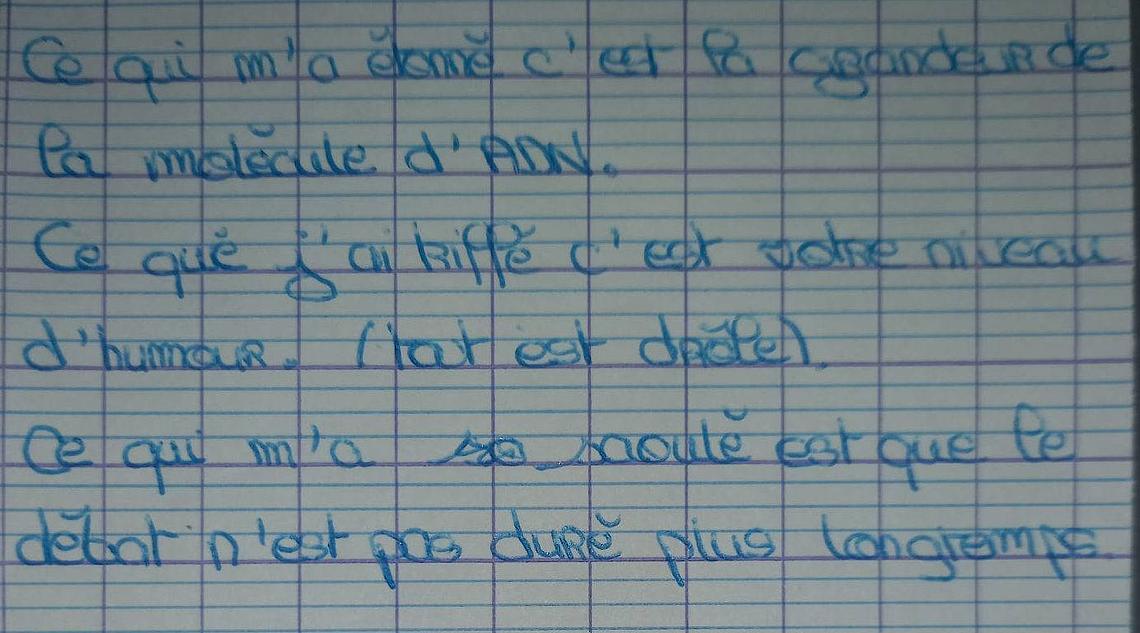 Ce qui m'a étonné c'est la grandeur de
la molécule d'ADN.
Ce que j'ai kiffé c'est votre niveau
d'humour. (tout est drôle).
Ce qui m'a saoulé est que le
débat n'est pas duré plus longtemps